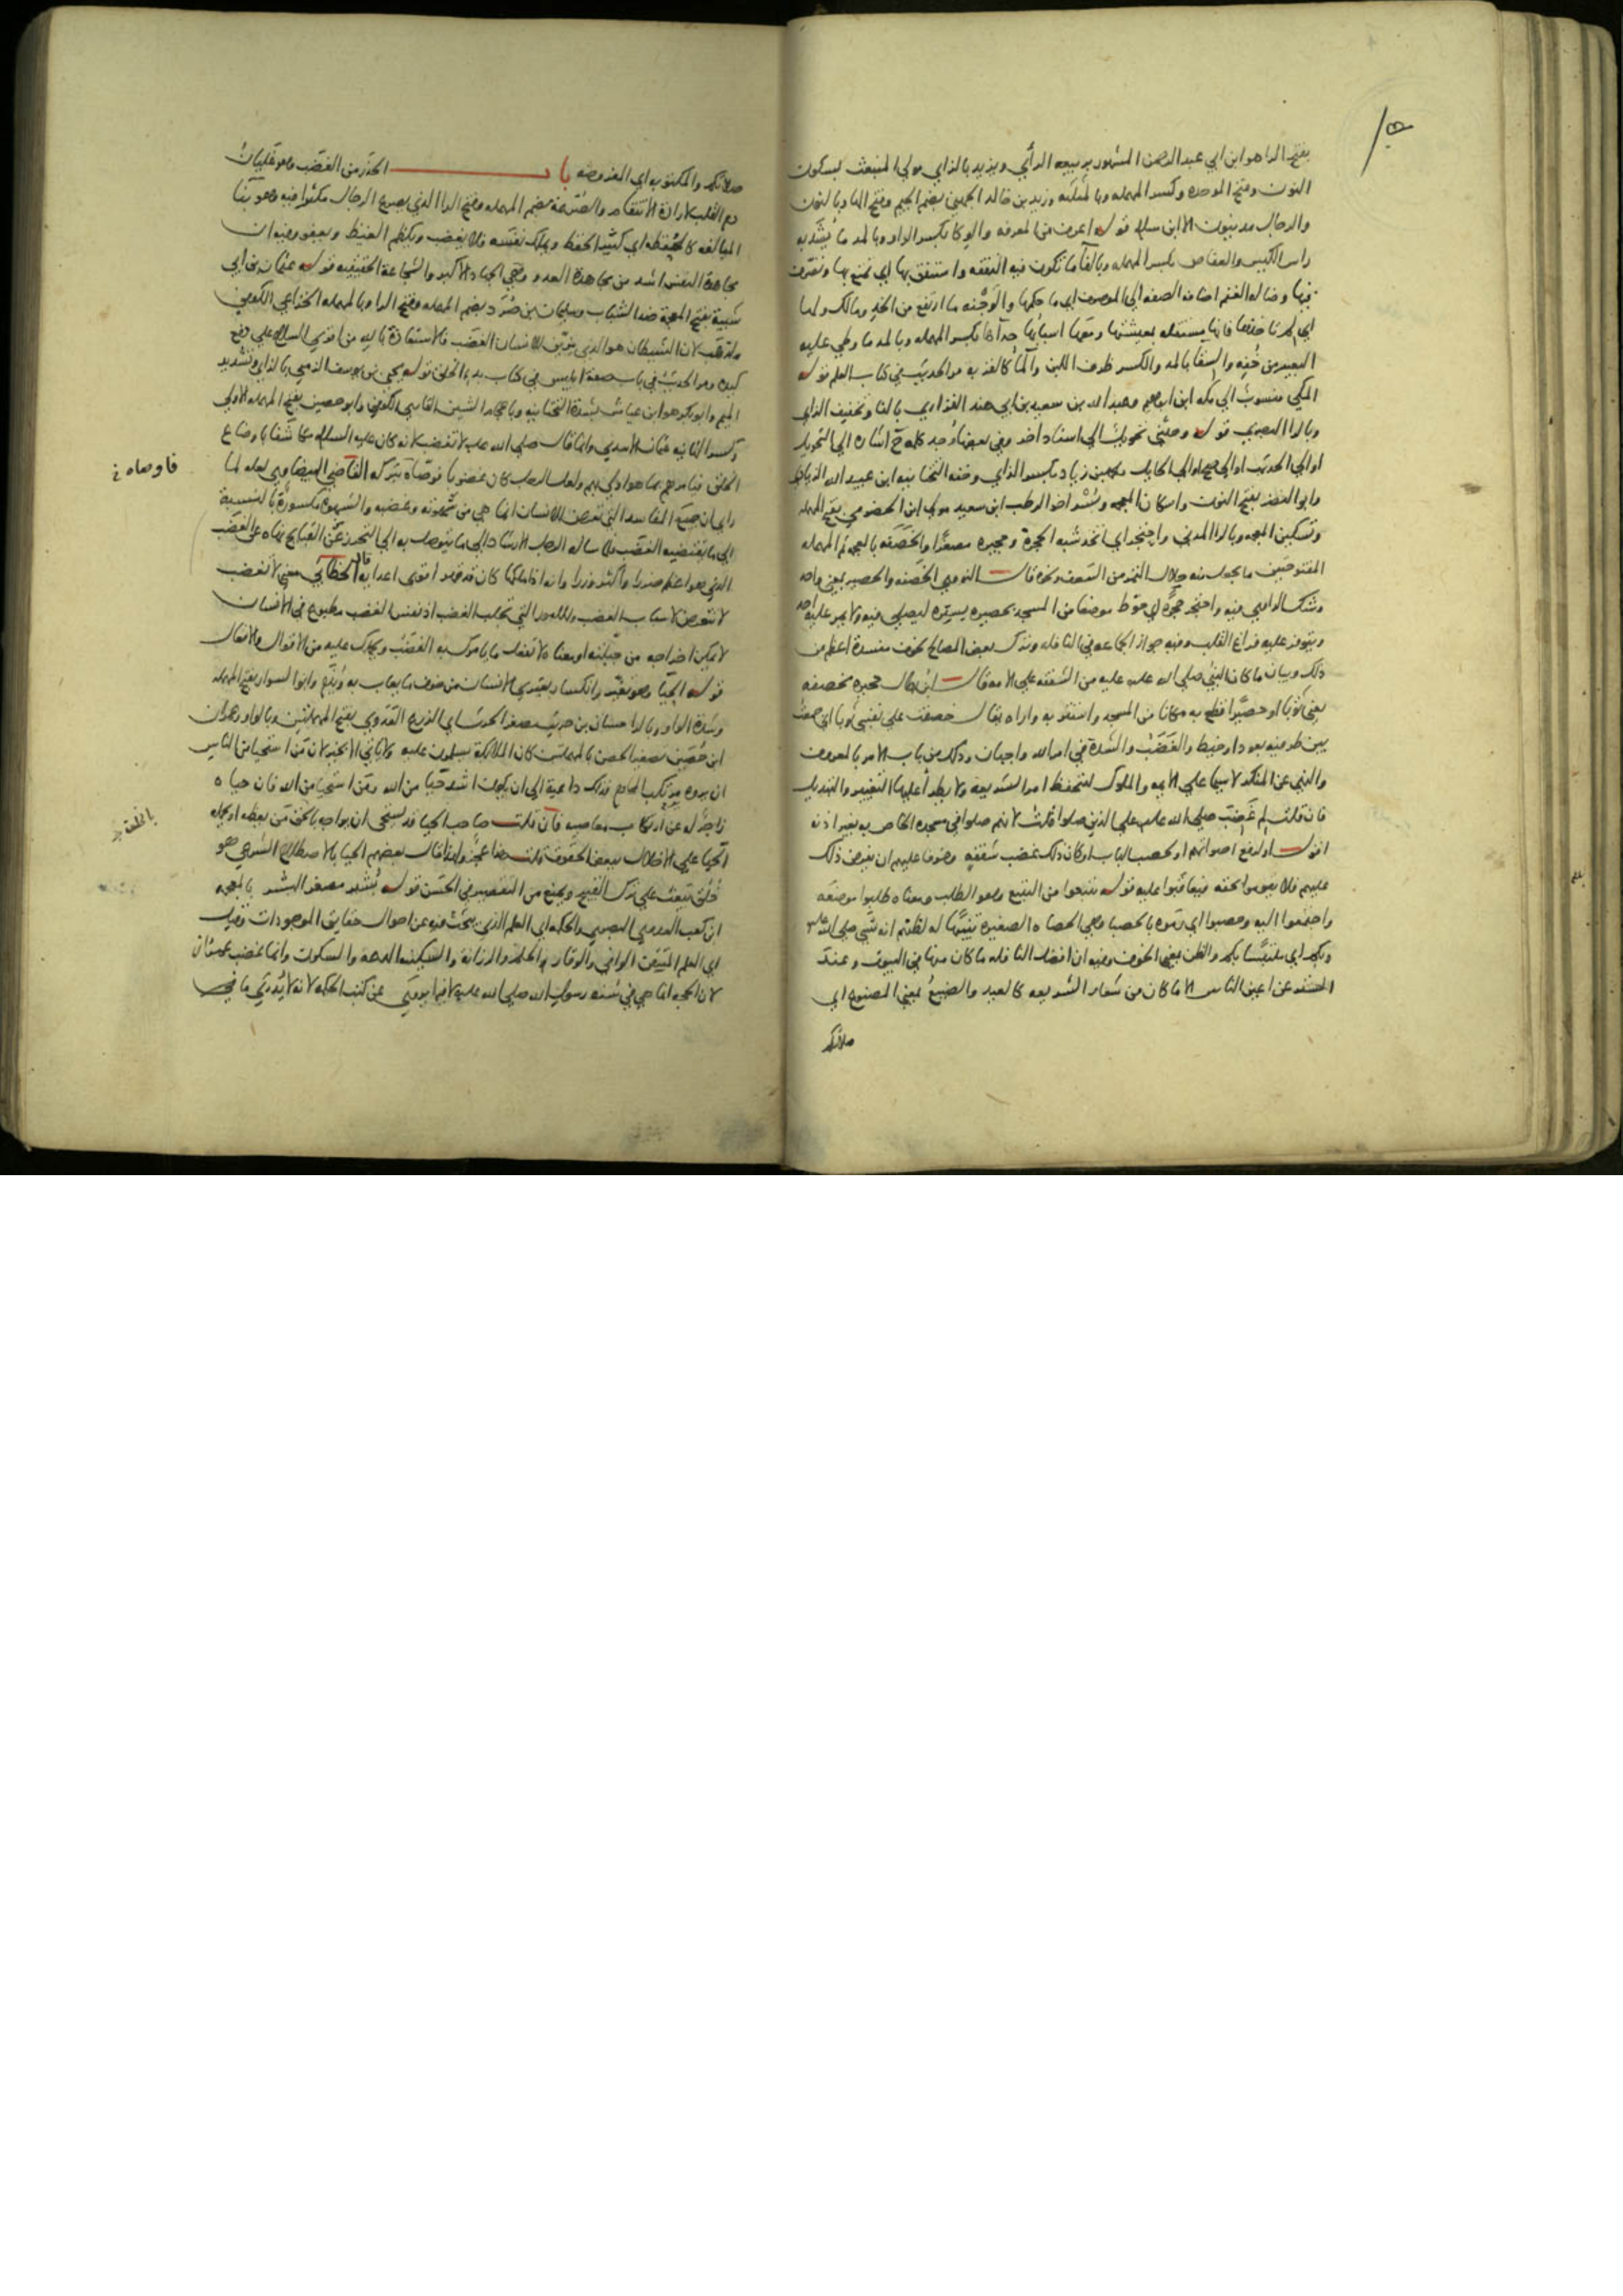 بفتح الراء هو ابن ابي عبد الرحمن المشهور بربيعه الرأي ويزيد بالزاي مولي المنبعث بسكون
النون وفتح الموحده وكسر المهمله وبالمثلثه وزيد بن خالد الجهني بضم الجيم وفتح الها وبالنون
والرجال مدنيون الا ابن سلام قوله اعرف من المعرفه والوكا بكسر الواو وبالمد ما يشد به
راس الكيس والعفاص بكسر المهمله وبالفا ما تكون فيه النفقه واستنفق بها اي تمتع بها وتصرف
فيها وضاله الغنم اضافه الصفه الي الموصوف اي ما حكمها والوجنه ما ارتفع من الخد ومالك ولها
اي لم تاخذها فانها مستقله بمعيشتها ومعها اسبابها حذاءها بكسر المهمله وبالمد ما وطي عليه
البعير من خفه والسقا بالمد والكسر ظرف اللبن والما كالقربه مر الحديث في كتاب العلم قوله
المكي منسوب الي مكه ابن ابراهيم وعبد الله بن سعيد بن ابي هند الفزاري بالفا وتخفيف الزاي
وبالرا البصري قوله وحدثني تحويل الي اسناد اخر وفي بعضها وجد كلمه ح اشاره الي التحويل
او الي الحديث او الي صح او الي الحايل محمد بن زياد بكسر الزاي وخفه التحتانيه ابن عبيد الله الزيادي
وابو النضر بفتح النون واسكان المعجمه وبسر اخو الرطب ابن سعيد مولي ابن الحضرمي بفتح المهمله
وتسكين المعجمه وبالرا المدني واحتجر اي اتخذ شبه الحجرة وحجيره مصغرا والخصفه بالمعجمه ثم المهمله
المفتوحتين ما يجعل منه جلال التمر من السعف ونحوه قال النووي الخصفه والحصير بمعني واحد
وشك الراوي فيه واحتجر حجرة اي حوط موضعا من المسجد بحصيره يستره ليصلي فيه ولا يمر عليه احد
ويتوفر عليه فراغ القلب وفيه جواز الجماعه في النافله وترك بعض المصالح لخوف مفسدة اعظم من
ذلك وبيان ما كان النبي صلي الله عليه من الشفقه علي الامه قال ابن بطال حجيره مخصفه
يعني ثوبا او حصيرا قطع به مكانا من المسجد واستتر به واراه يقال خصفت علي نفسي ثوبا اي جمعت
بين طرفيه بعود او خيط والغضب والشدة في امر الله واجبان وذلك من باب الامر بالمعروف
والنهي عن المنكر لا سيما علي الايمه والملوك لتحفظ امر الشريعه ولا يطرأ عليها التغيير والتبديل
فان قلت لم غضب صلي الله عليه علي الذين صلوا قلت لانهم صلوا في مسجده الخاص به بغير اذنه
اقول او لرفع اصواتهم او لحصب الباب او كان ذلك غضب شفقه وخوفا عليهم ان يفرض ذلك
عليهم فلا يقوموا بحقه فيعاقبوا عليه قوله تتبعوا من التتبع وهو الطلب ومعناه طلبوا موضعه
واجتمعوا اليه وحصبوا اي رموه بالحصبا وهي الحصاه الصغيره تنبيها له لظنهم انه نسي صلي الله عليه
وبكم اي ملتبسا بكم والظن بمعني الخوف وفيه ان افضل النافله ما كان منها في البيوت وعند
الستر عن اعين الناس الا ما كان من شعار الشريعه كالعيد والصنيع بمعني المصنوع اي
صلاتكم
صلاتكم والمكتوبه اي المفروضه باب الحذر من الغضب وهو غليان
دم القلب لارادة الانتقام والصرعة بضم المهمله وفتح الرا الذي يصرع الرجال مكثرا فيه وهو بنا
المبالغه كالحفظه اي كثير الحفظ ويملك نفسه فلا يغضب ويكظم الغيظ ويعفو وفيه ان
مجاهدة النفس اشد من مجاهدة العدو وهي الجهاد الاكبر والشجاعة الحقيقيه قوله عثمان بن ابي
شيبة بفتح المعجمة ضد الشباب وسليمان بن صرد بضم المهمله وفتح الرا وبالمهمله الخزاعي الكوفي
ولذهب لان الشيطان هو الذي يزين للانسان الغضب فالاستعاذة بالله من اقوي السلاح علي دفع
كيده ومر الحديث في باب صفة ابليس في كتاب بدء الخلق قوله يحيي بن يوسف الزمي بالزاي وتشديد
الميم وابو بكر هو ابن عياش بشدة التحتانيه وباعجام الشين القاري الكوفي وابو حصين بفتح المهمله الاولي
وكسر الثانيه عثمان الاسدي وانما قال صلي الله عليه لا تغضب لانه كان عليه السلام مكاشفا باوضاع
الخلق فيامرهم بما هو اولي بهم ولعل الرجل كان غضوبا فوصاه بتركه القاضي البيضاوي لعله لما
راي ان جميع المفاسد التي تعرض للانسان انما هي من شهوته وغضبه والشهوة مكسورة بالنسبة
الي ما يقتضيه الغضب فلما ساله الرجل الارشاد الي ما يتوصل به الي التحرز عن القبايح نهاه عن الغضب
الذي هو اعظم ضررا واكثر وزرا وانه اذا ملكها كان قد قهر اقوي اعدايه قال الخطابي معني لا تغضب
لا تتعرض لاسباب الغضب وللامور التي تجلب الغضب اذ نفس الغضب مطبوع في الانسان
لا يمكن اخراجه من جبلته او معناه لا تفعل ما يامرك به الغضب ويحملك عليه من الاقوال والافعال
قوله الحيا وهو تغير وانكسار يعتري الانسان من خوف ما يعاب به ويذم وابو السوار بفتح المهمله
وشدة الواو وبالرا حسان بن حريث مصغر الحرث اي الزرع العدوي بفتح المهملتين وبالواو وعمران
ابن حصين مصغر الحصن بالمهملتين كان الملائكة يسلمون عليه ولا ياتي الا بخير لان من استحيا من الناس
ان يروه يرتكب المحارم فذلك داعية الي ان يكون اشد حيا من الله ومن استحيا من الله فان حياه
زاجر له عن ارتكاب معاصيه فان قلت صاحب الحيا قد يستحي ان يواجه بالحق من يعظمه او يحمله
الحيا علي الاخلال ببعض الحقوق قلت هذا عجز ولهذا قال بعضهم الحيا بالاصطلاح الشرعي هو
خلق يبعث علي ترك القبيح ويمنع من التقصير في الحسن قوله بشير مصغر البشر بالمعجمه
ابن كعب العدوي البصري والحكمه اي العلم الذي يبحث فيه عن احوال حقايق الموجودات وقيل
اي العلم المتقن الوافي والوقار الحلم والرزانة والسكينه الدعه والسكون وانما غضب عمران
لان الحجه انما هي في سنه رسول الله صلي الله عليه لا فيما يروي عن كتب الحكمه لانه لا يدري ما في
فاوصاه